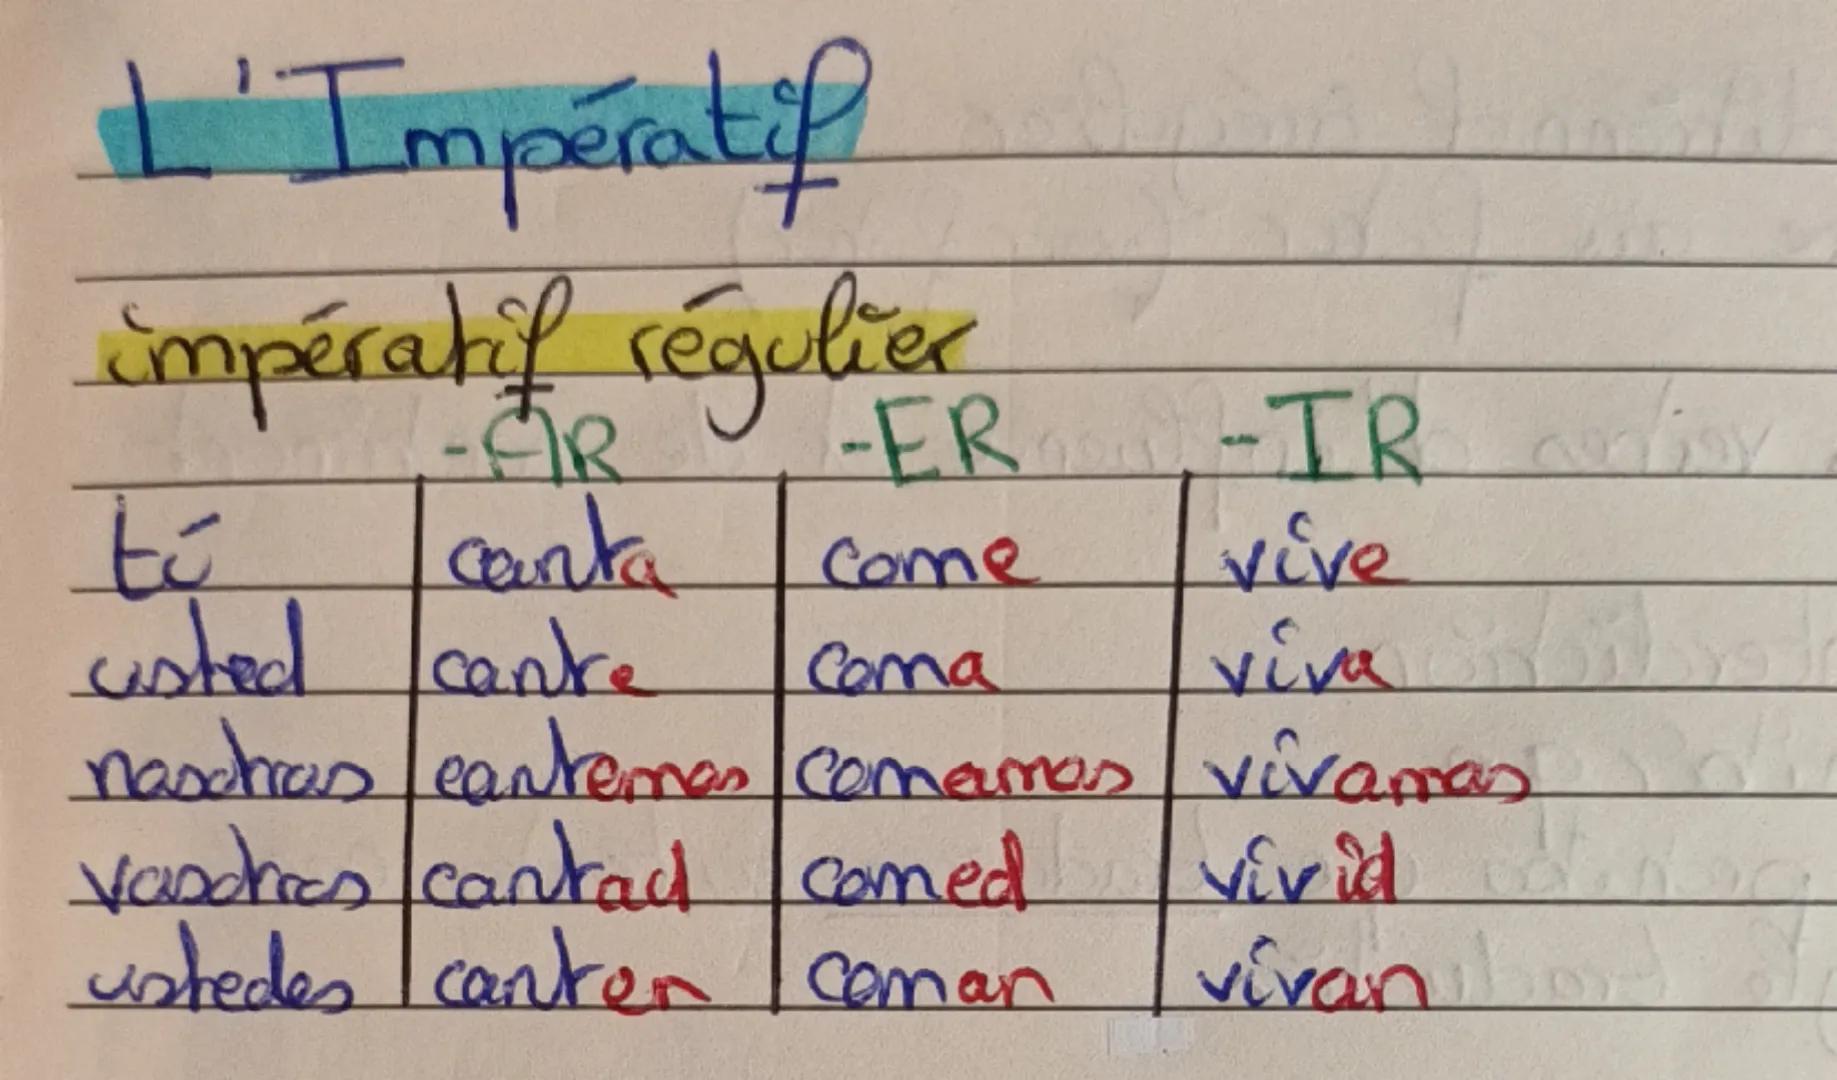 L'Impératif
impératif régulier
-AR -ER -IR
tú canta come vive
usted cante coma viva
nosotros cantemos comamos vivamos
vosotros cantad comed vivid
ustedes canten coman vivan